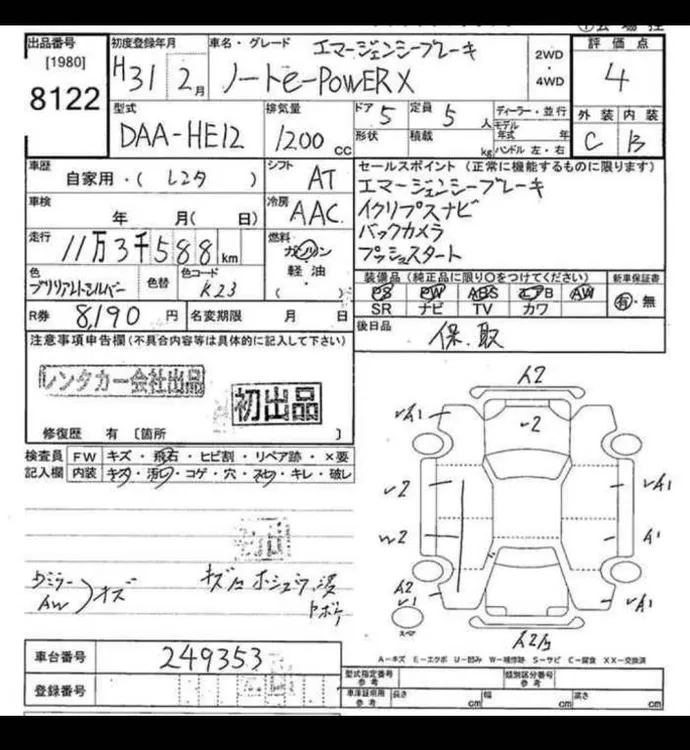 出品番号
[1980]
8122
初度登録年月
H31 2月
車名・グレード
エマージェンシーブレーキ
ノートe-POWER X
2WD
・
4WD
評価点
4
外装 内装
C B
型式
DAA-HE12
排気量
1200 CC
ドア 5
定員 5 人
形状
積載 kg
ディーラー・並行
モデル年式 年
ハンドル 左・右
車歴
自家用・( レンタ )
シフト
AT
車検
年 月( 日)
冷房
AAC
走行
11万3千588km
燃料
ガソリン
軽油
( )
色
色替
色コード
K23
R券 8,190 円
名変期限 月 日
セールスポイント (正常に機能するものに限ります)
エマージェンシーブレーキ
イクリプスナビ
バックカメラ
プッシュスタート
装備品 (純正品に限り○をつけてください)
新車保証書
PS PW ABS エアB AW
SR ナビ TV カワ
有・無
後日品
保.取
注意事項申告欄 (不具合内容等は具体的に記入して下さい)
レンタカー会社出品
初出品
修復歴 有 〔箇所 〕
検査員記入欄
FW キズ・飛石・ヒビ割・リペア跡・×要
内装 キズ・汚れ・コゲ・穴・スレ・キレ・破レ
ウミラー
AW
キズ
A2
A1
2
2
W2
A1
A1
A2
A1
スペア
A-キズ E-エクボ U-凹み W-補修跡 S-サビ C-腐食 XX-交換済
車台番号
249353
登録番号
型式指定番号
参考
類別区分番号
参考
車庫証明用
参考
長さ cm
幅 cm
高さ cm